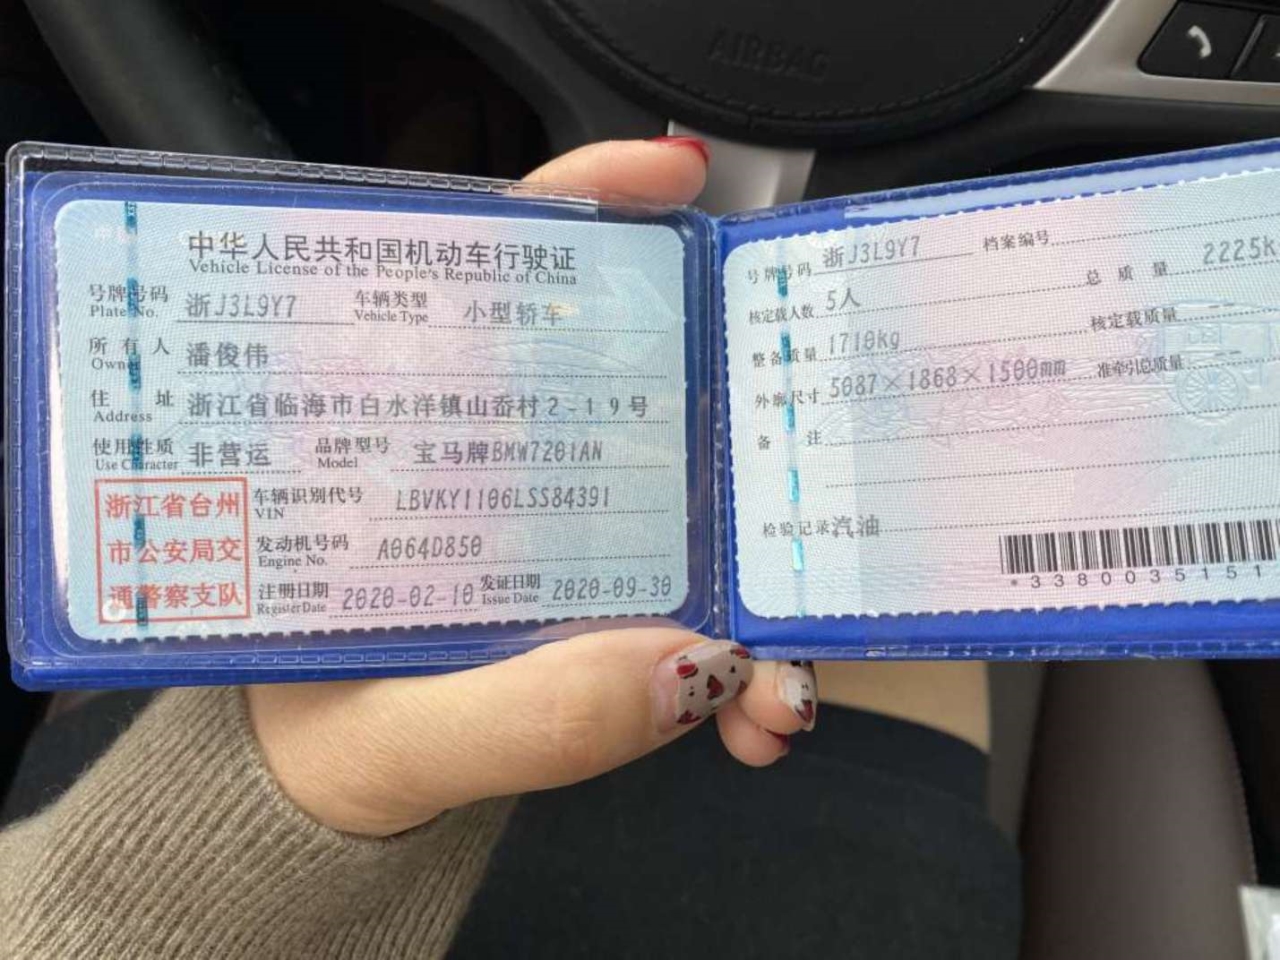 AIRBAG
中华人民共和国机动车行驶证
Vehicle License of the People's Republic of China
号牌号码 浙J3L9Y7 车辆类型 小型轿车
Plate No. Vehicle Type
所有人 潘俊伟
Owner
住址 浙江省临海市白水洋镇山岙村2-19号
Address
使用性质 非营运 品牌型号 宝马牌BMW7201AN
Use Character Model
浙江省台州
市公安局交
通警察支队
车辆识别代号 LBVKY1106LSS84391
VIN
发动机号码 A064D850
Engine No.
注册日期 2020-02-10 发证日期 2020-09-30
Register Date Issue Date
号牌号码 浙J3L9Y7 档案编号
核定载人数 5人 总质量 2225k
整备质量 1710kg 核定载质量 --
外廓尺寸 5087×1868×1500mm 准牵引总质量 --
备注
检验记录 汽油
*3380035151